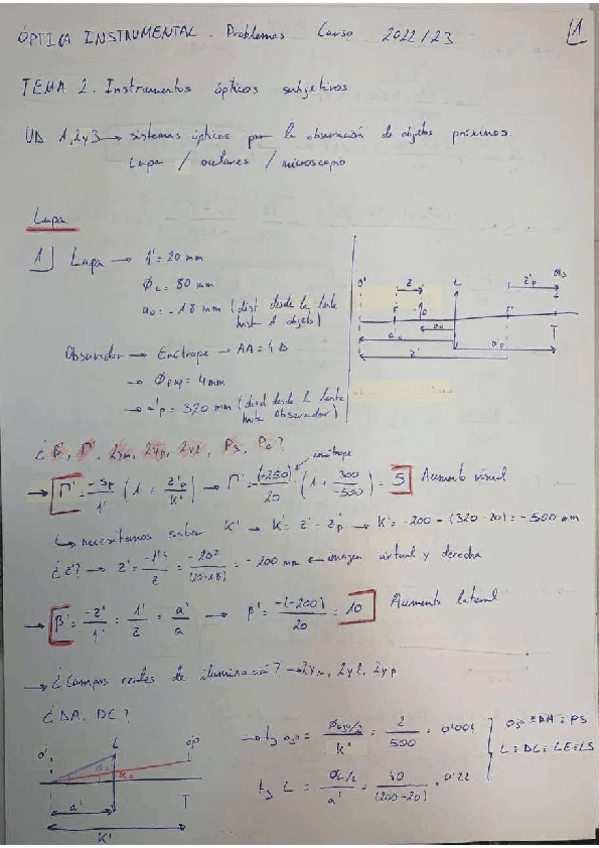 ÓPTICA INSTRUMENTAL. Problemas Curso 2022/23
1
TEMA 2. Instrumentos ópticos subjetivos
UD 1,2y3 → sistemas ópticos par la observación de objetos próximos.
Lupa / oculares / microscopio
Lupa
1] Lupa → f' = 20 mm
ϕL = 80 mm
a0 = -18 mm (dist desde la lente
hast el objeto)
Observador → Emétrope → AA = 4 D
→ ϕPup = 4mm
→ a'p = 320 mm (dist desde la lente
hasta observador)
O' F z O L F' z'p ojo
a0
a'0 a'p T
z'
¿ β', Γ', 2ym, 2yp, 2yl, Ps, Pe ?
→ Γ' = -sp/f' (1 + z'p/K') → Γ' = -(-250)/20 · (1 + 300/-500) = 5 Aumento visual
emétrope
↳ necesitamos saber K' → K' = z' - z'p → K' = -200 - (320-20) = -500 mm
¿z'? → z' = -f'²/z = -20²/(20-18) = -200 mm ← imagen virtual y derecha
→ β' = -z'/f' = f'/z = a'/a → β' = -(-200)/20 = 10 Aumento lateral
→ ¿Campos reales de iluminación? → 2ym, 2yl, 2yp
¿DA, DC?
O' L ojo
a'
T
K'
→ tg ojo = 2/500 = 0'004
tg L = ϕL/2/a' = 40/(200-20) = 0'22
ojo = DA = PS
L = DC = LE = LS